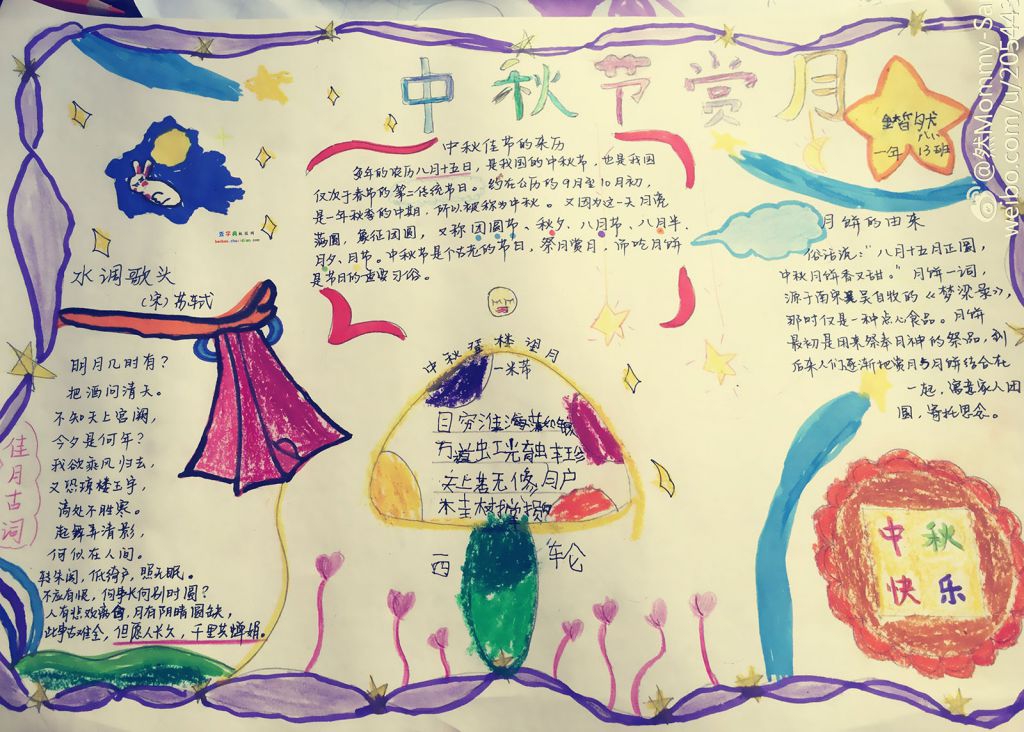 中秋节赏月
锴然
一年八(13)班
中秋佳节的来历
每年的农历八月十五日，是我国的中秋节，也是我国
仅次于春节的第二传统节日。约在公历的9月至10月初，
是一年秋季的中期，所以被称为中秋。又因为这一天月亮
满圆，象征团圆，又称团圆节、秋夕、八月节、八月半、
月夕、月节。中秋节是个古老的节日，祭月赏月，而吃月饼
是节日的重要习俗。
查字典
月饼的由来
俗话说："八月十五月正圆，
中秋月饼香又甜。"月饼一词，
源于南宋吴自牧的《梦梁录》，
那时仅是一种点心食品。月饼
最初是用来祭奉月神的祭品，到
后来人们逐渐把赏月与月饼结合在
一起，寓意家人团
圆，寄托思念。
水调歌头
（宋）苏轼
明月几时有？
把酒问清天。
不知天上宫阙，
今夕是何年？
我欲乘风归去，
又恐琼楼玉宇，
高处不胜寒。
起舞弄清影，
何似在人间。
转朱阁，低绮户，照无眠。
不应有恨，何事长向别时圆？
人有悲欢离合，月有阴晴圆缺，
此事古难全，但愿人长久，千里共婵娟。
佳月古词
中秋登楼望月
米芾
目穷淮海满如银
万道虹光育蚌珍
天上若无修月户
桂树撑损
西 轮
中秋
快乐
@然Mommy-Sa
weibo.com/u/2054443